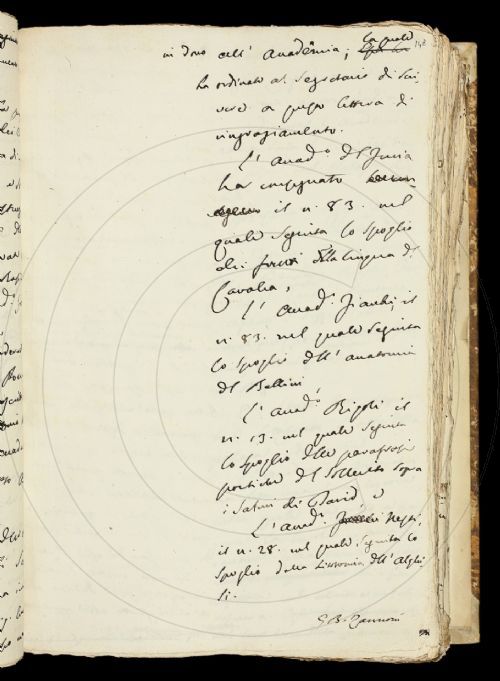 in dono all' Accademia; la quale 142
ha ordinato al Segretario di scri-
vere a questo lettera di
ringraziamento.
L' Accad.º Del Furia
ha consegnato
il n. 83. nel
quale seguita lo spoglio
dei frutti della lingua del
Cavalca,
L' Accad.º Fiacchi, il
n. 83. nel quale seguita
lo spoglio dell' anatomia
del Bellini
L' Accad.º Rigoli il
n. 13. nel quale seguita
lo spoglio delle parafrasi
poetiche del Salterio sopra
i salmi di David e
L' Accad.º Nesti,
il n. 28. nel quale seguita lo
spoglio della dell'
si.
G. B. Zannoni